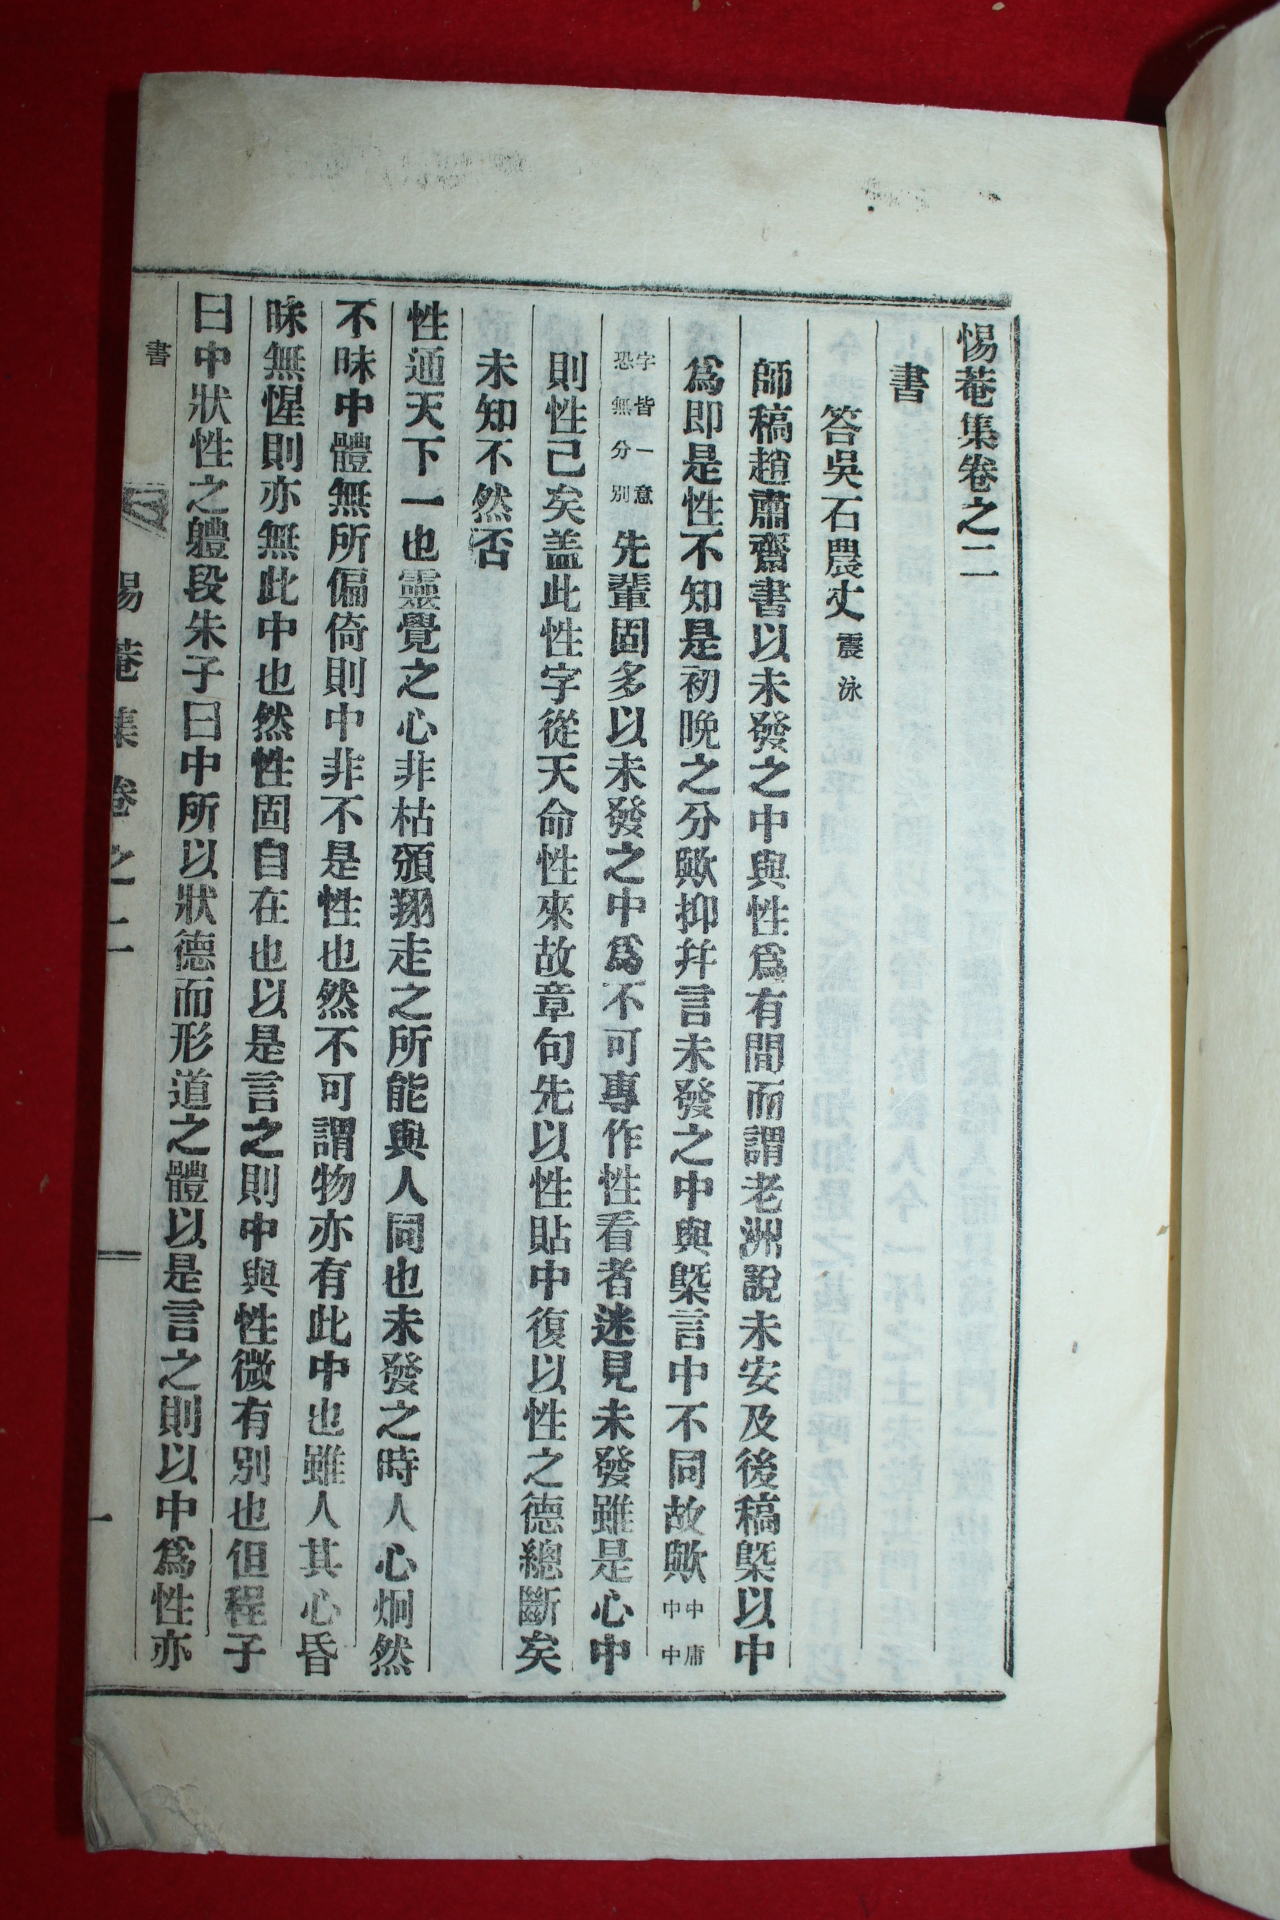 惕菴集卷之二
書
答吳石農丈震泳
師稿趙肅齋書以未發之中與性爲有間而謂老洲說未安及後稿槩以中
爲即是性不知是初晩之分歟抑幷言未發之中與槩言中不同故歟中庸中中
字皆一意恐無分別先輩固多以未發之中爲不可專作性看者迷見未發雖是心中
則性已矣盖此性字從天命性來故章句先以性貼中復以性之德總斷矣
未知不然否
性通天下一也靈覺之心非枯槁翔走之所能與人同也未發之時人心炯然
不昧中體無所偏倚則中非不是性也然不可謂物亦有此中也雖人其心昏
昧無惺則亦無此中也然性固自在也以是言之則中與性微有別也但程子
曰中狀性之軆段朱子曰中所以狀德而形道之體以是言之則以中爲性亦
書
惕菴集卷之二
一